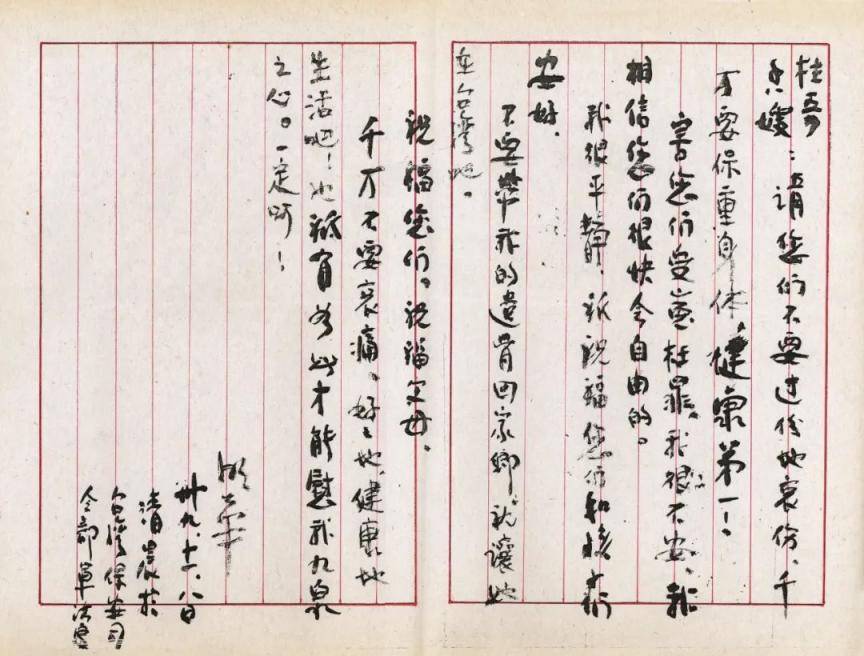 桂
嫂：請您们不要过份地哀伤、千
万要保重身体，健康第一！
害您们受枉罪、我很不安，我
相信您们很快会自由的。
我很平静、祗祝福您们和
安好、
不要带我的遺骨回家鄉、就讓她
在台湾吧。
祝福您们。祝福父母、
千万不要哀痛、好好地、健康地
生活吧！也祗有如此才能慰我九泉
之心。一定啊！
卅九、十一、八日
清晨於
台灣保安司
令部軍法處